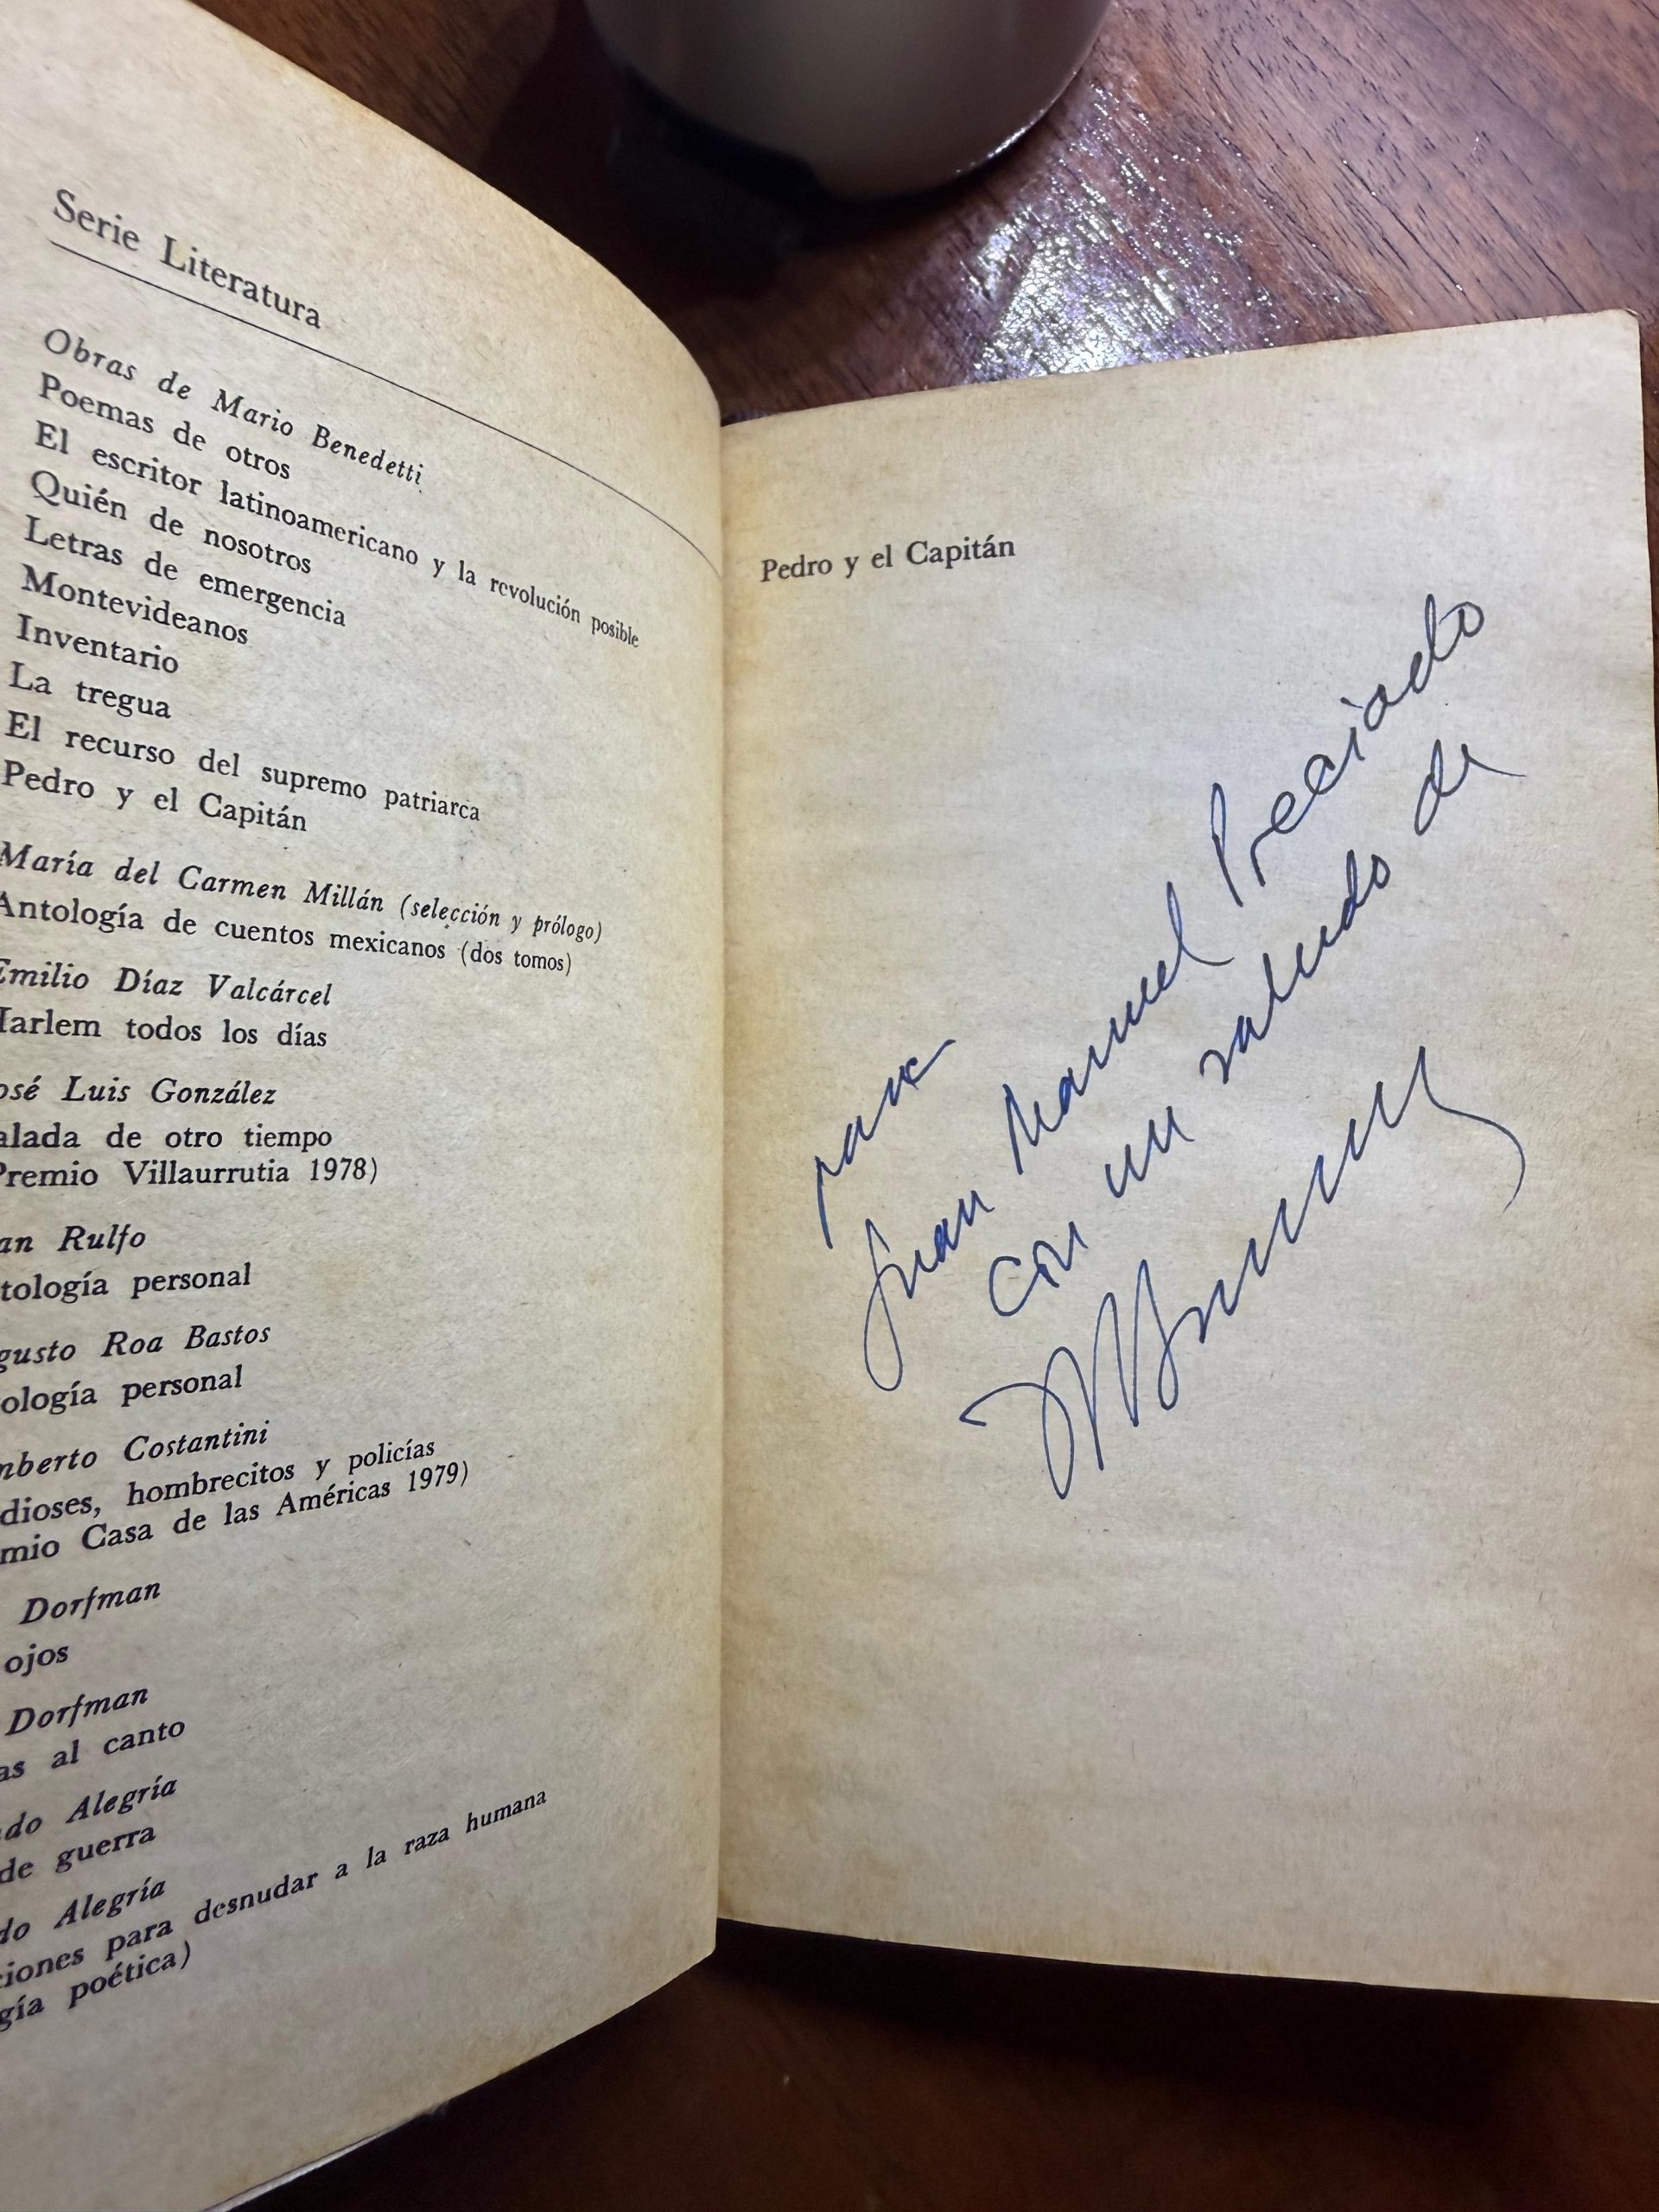 Serie Literatura
Obras de Mario Benedetti
Poemas de otros
El escritor latinoamericano y la revolución posible
Quién de nosotros
Letras de emergencia
Montevideanos
Inventario
La tregua
El recurso del supremo patriarca
Pedro y el Capitán
María del Carmen Millán (selección y prólogo)
Antología de cuentos mexicanos (dos tomos)
Emilio Díaz Valcárcel
Harlem todos los días
osé Luis González
alada de otro tiempo
Premio Villaurrutia 1978)
an Rulfo
tología personal
gusto Roa Bastos
ología personal
mberto Costantini
dioses, hombrecitos y policías
mio Casa de las Américas 1979)
Dorfman
ojos
Dorfman
as al canto
do Alegría
de guerra
do Alegría
ciones para desnudar a la raza humana
gía poética)
Pedro y el Capitán
para
Juan Manuel Preciado
con un saludo de